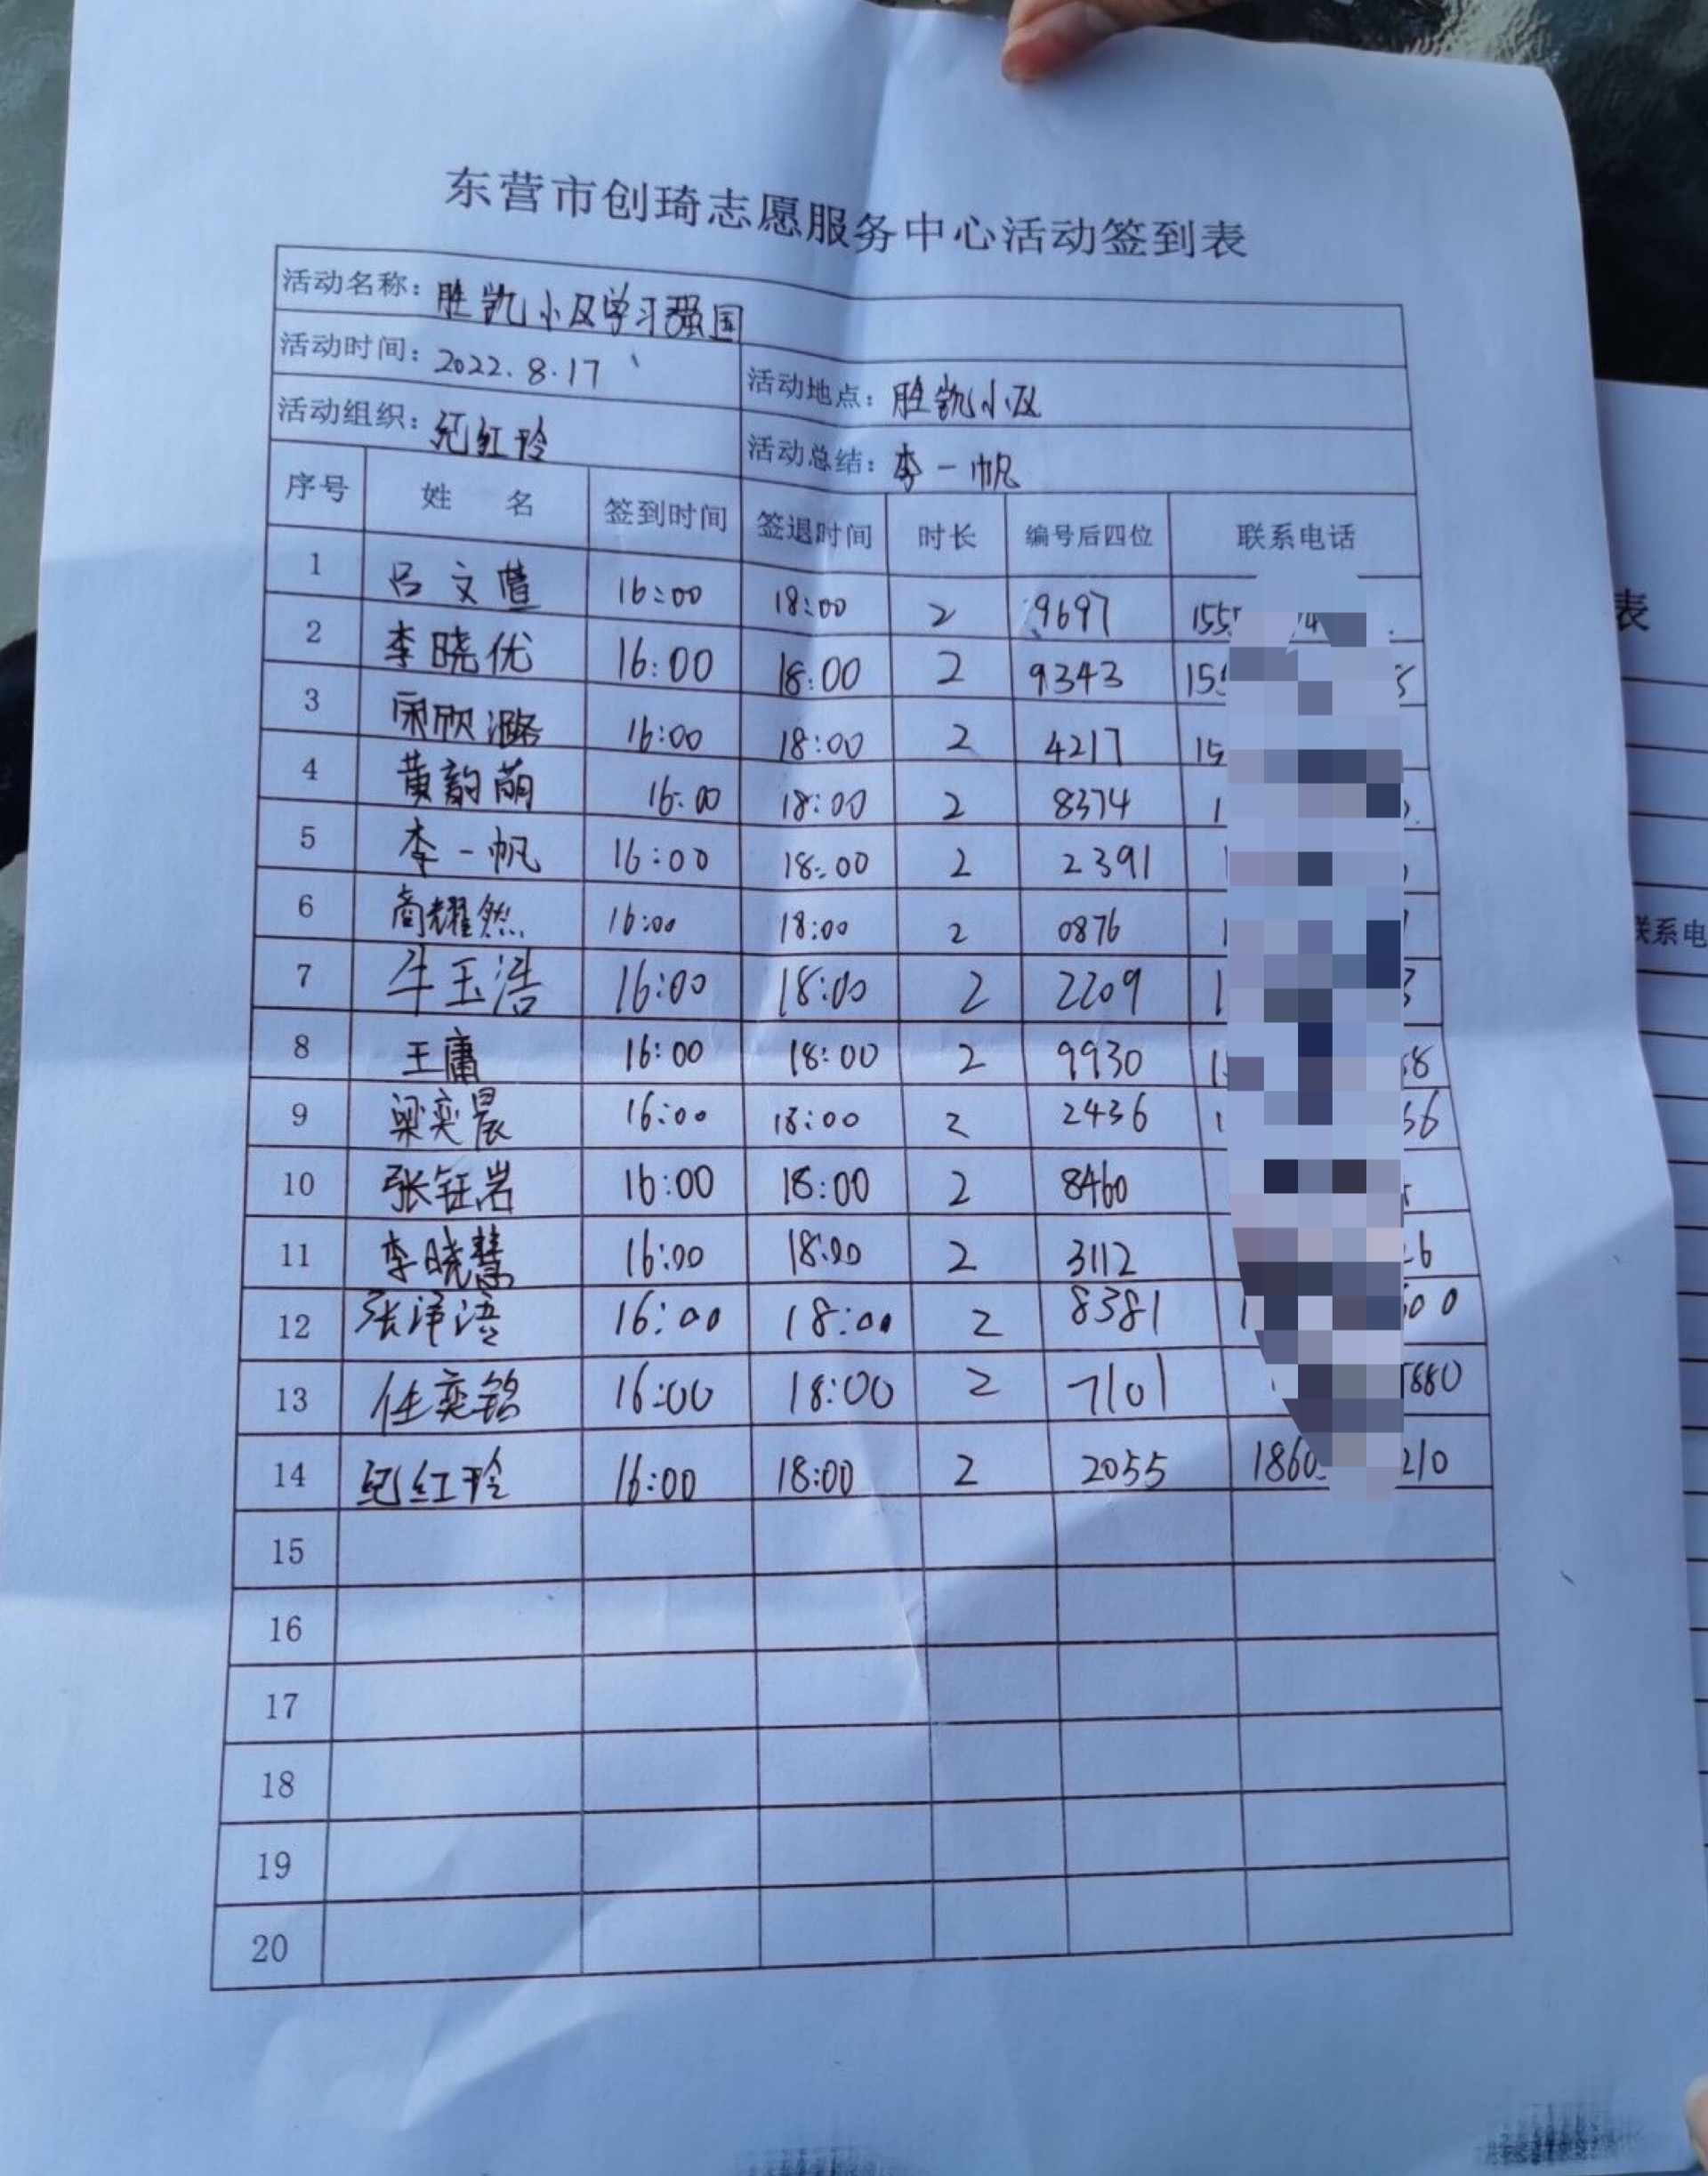 东营市创琦志愿服务中心活动签到表
活动名称：胜凯小区学习强国
活动时间：2022.8.17 活动地点：胜凯小区
活动组织：纪红玲 活动总结：李一帆
序号 姓名 签到时间 签退时间 时长 编号后四位 联系电话
1 吕文萱 16:00 18:00 2 9697 155
2 李晓优 16:00 18:00 2 9343 15
3 宋欣潞 16:00 18:00 2 4217 15
4 黄韵萌 16:00 18:00 2 8374 1
5 李一帆 16:00 18:00 2 2391
6 商耀然 16:00 18:00 2 0876
7 牛玉浩 16:00 18:00 2 2209 1
8 王庸 16:00 18:00 2 9930
9 梁奕晨 16:00 18:00 2 2436
10 张钰岩 16:00 18:00 2 8460
11 李晓慧 16:00 18:00 2 3112 26
12 张泽语 16:00 18:00 2 8381 00
13 任奕铭 16:00 18:00 2 7101 880
14 纪红玲 16:00 18:00 2 2055 1860 210
15
16
17
18
19
20
表
联系电